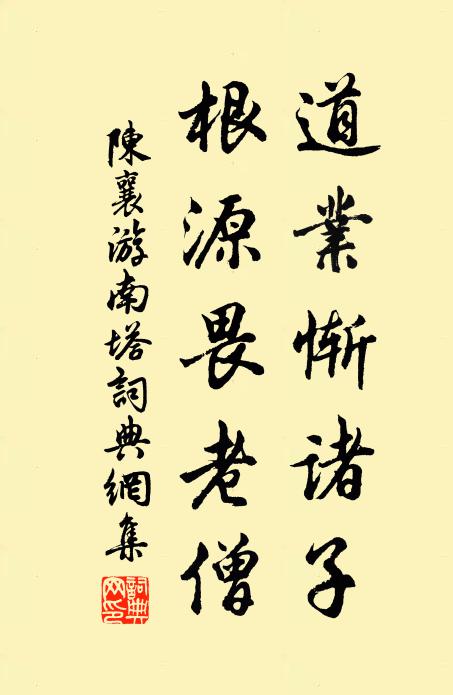 道業慚諸子
根源畏老僧
陳襄游南塔詞典網集
詞典網印